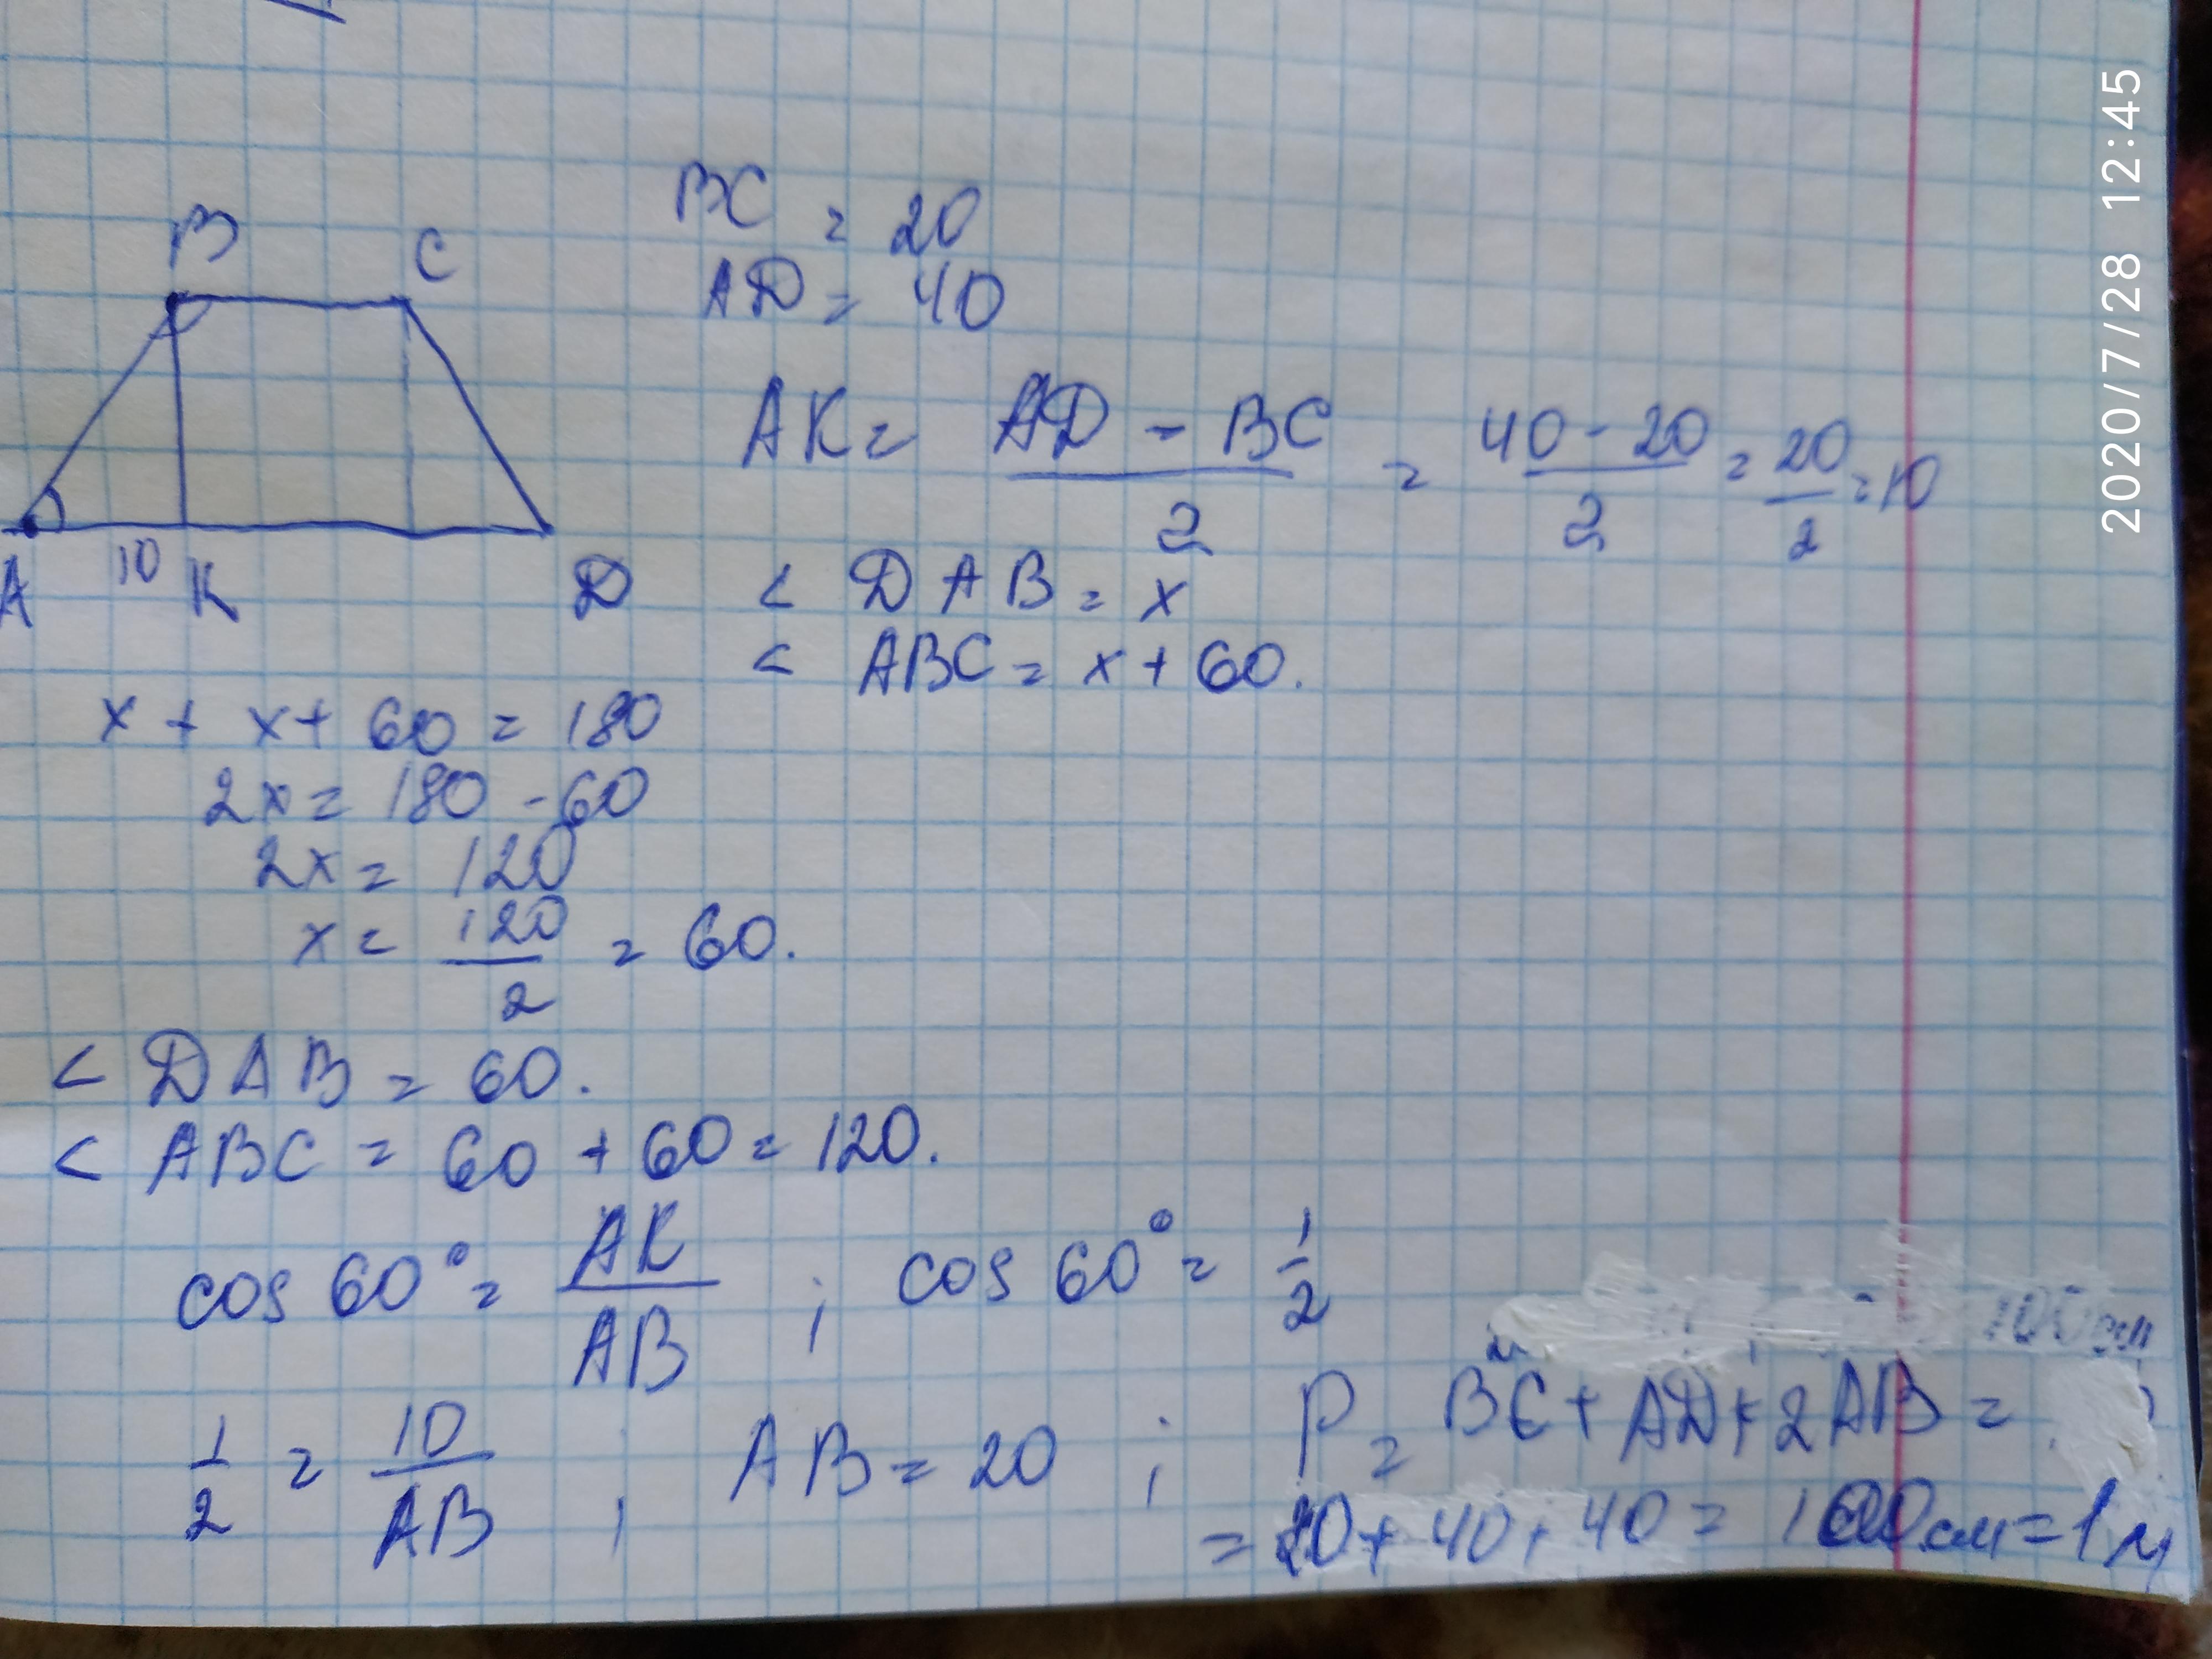 BC = 20
AD = 40
B
C
A
10
K
D
AK = AD - BC / 2 = 40 - 20 / 2 = 20 / 2 = 10
< DAB = x
< ABC = x + 60.
x + x + 60 = 180
2x = 180 - 60
2x = 120
x = 120 / 2 = 60.
< DAB = 60.
< ABC = 60 + 60 = 120.
cos 60° = AK / AB ; cos 60° = 1 / 2
100 см
1 / 2 = 10 / AB ; AB = 20 ; P = BC + AD + 2AB =
= 20 + 40 + 40 = 100 см = 1 м
2020/7/28 12:45